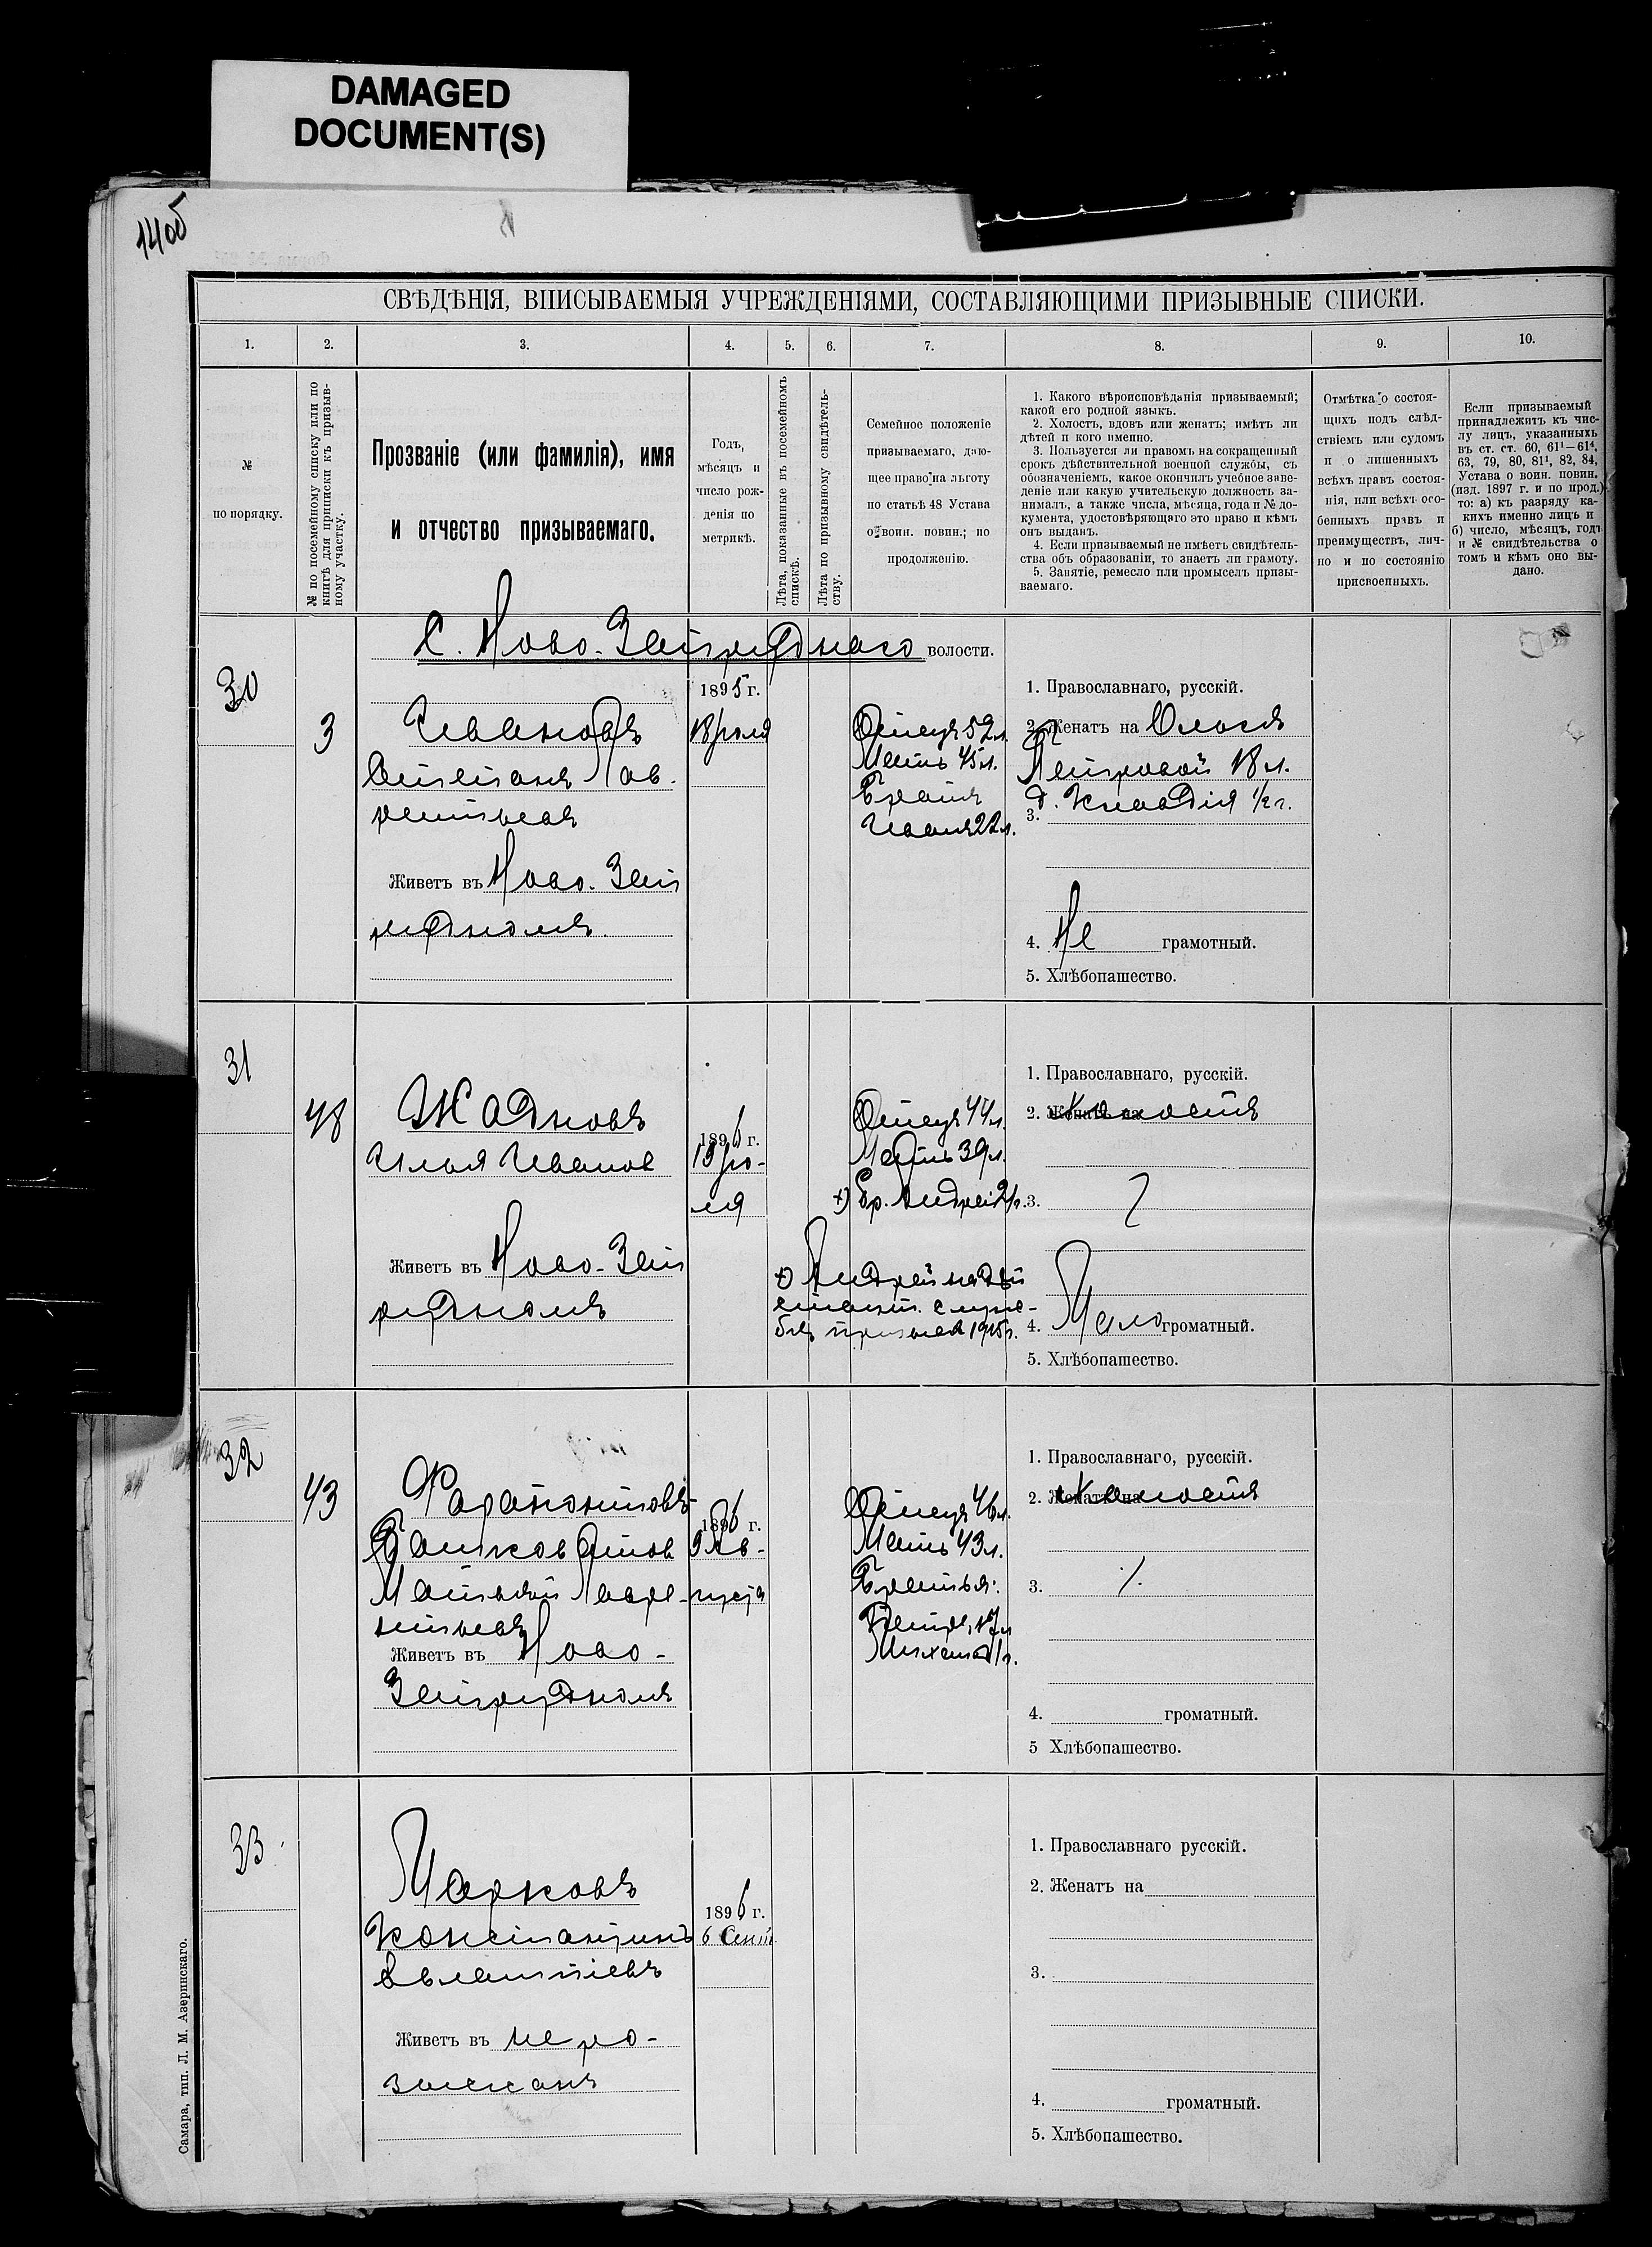 DAMAGED
DOCUMENT(S)
140об
СВѢДѢНІЯ, ВПИСЫВАЕМЫЯ УЧРЕЖДЕНІЯМИ, СОСТАВЛЯЮЩИМИ ПРИЗЫВНЫЕ СПИСКИ.
1. 2. 3. 4. 5. 6. 7. 8. 9. 10.
№
по порядку.
№ по посемейному списку или по
книгѣ для приписки къ призыв-
ному участку.
Прозваніе (или фамилія), имя
и отчество призываемаго.
Годъ,
мѣсяцъ и
число рож-
денія по
метрикѣ.
Лѣта, показанные въ посемейномъ
спискѣ.
Лѣта по призывному свидѣтель-
ству.
Семейное положеніе
призываемаго, даю-
щее право на льготу
по статьѣ 48 Устава
о воин. повин.; по
продолженію.
1. Какого вѣроисповѣданія призываемый;
какой его родной языкъ.
2. Холостъ, вдовъ или женатъ; имѣтъ ли
дѣтей и кого именно.
3. Пользуется ли правомъ на сокращенный
срокъ дѣйствительной военной службы, съ
обозначеніемъ, какое окончилъ учебное заве-
деніе или какую учительскую должность за-
нималъ, а также числа, мѣсяца, года и № до-
кумента, удостовѣряющаго это право и кѣмъ
онъ выданъ.
4. Если призываемый не имѣетъ свидѣтель-
ства объ образованіи, то знаетъ ли грамоту.
5. Занятіе, ремесло или промыселъ призы-
ваемаго.
Отмѣтка о состоя-
щихъ подъ слѣд-
ствіемъ или судомъ
и о лишенныхъ
всѣхъ правъ состоя-
нія, или всѣхъ осо-
бенныхъ правъ и
преимуществъ, лич-
но и по состоянію
присвоенныхъ.
Если призываемый
принадлежитъ къ чис-
лу лицъ, указанныхъ
въ ст. ст. 60, 61¹—61⁴,
63, 79, 80, 81¹, 82, 84,
Устава о воин. повин.
(изд. 1897 г. и по прод.)
то: а) къ разряду ка-
кихъ именно лицъ и
б) число, мѣсяцъ, годъ
и № свидѣтельства о
томъ и кѣмъ оно вы-
дано.
С. Ново-Запруднаго волости.
30
3
Ивановъ
Степанъ Лав-
рентьевъ
Живетъ въ Ново-Зап
рудномъ.
1895 г.
18 Іюля
Отецъ 52 л.
Мать 45 л.
Братъ
Иванъ 22 л.
1. Православнаго, русскій.
2. Женатъ на Ольгѣ
Петровой 18 л.
д. Клавдія 1/2 г.
3.
4. Не грамотный.
5. Хлѣбопашество.
31
48
Жадновъ
Илья Иванов
Живетъ въ Ново-Зап
рудномъ
1896 г.
19 Ію-
ля
Отецъ 44 л.
Мать 39 л.
+) бр. Андрей 21 г.
+) Андрей на дѣй
ствит. служ-
бѣ призыва 1915 г.
1. Православнаго, русскій.
2. Женатъ на Холостъ
3.
4. Мало громатный.
5. Хлѣбопашество.
32
43
Фарапонтовъ-
Матвѣй Лавре-
нтьевъ
Живетъ въ Ново-
Запрудномъ
1896 г.
9 Ав-
густа
Отецъ 46 л.
Мать 43 л.
Братья:
Петръ 17 л
Михаил 11 л.
1. Православнаго, русскій.
2. Женатъ на Холостъ
3.
4. громатный.
5 Хлѣбопашество.
33
Марковъ
Константинъ
Евлампіевъ
Живетъ въ не ро-
зысканъ
1896 г.
6 Сент
1. Православнаго русскій.
2. Женатъ на
3.
4. громатный.
5. Хлѣбопашество.
Самара, тип. Л. М. Азеринскаго.